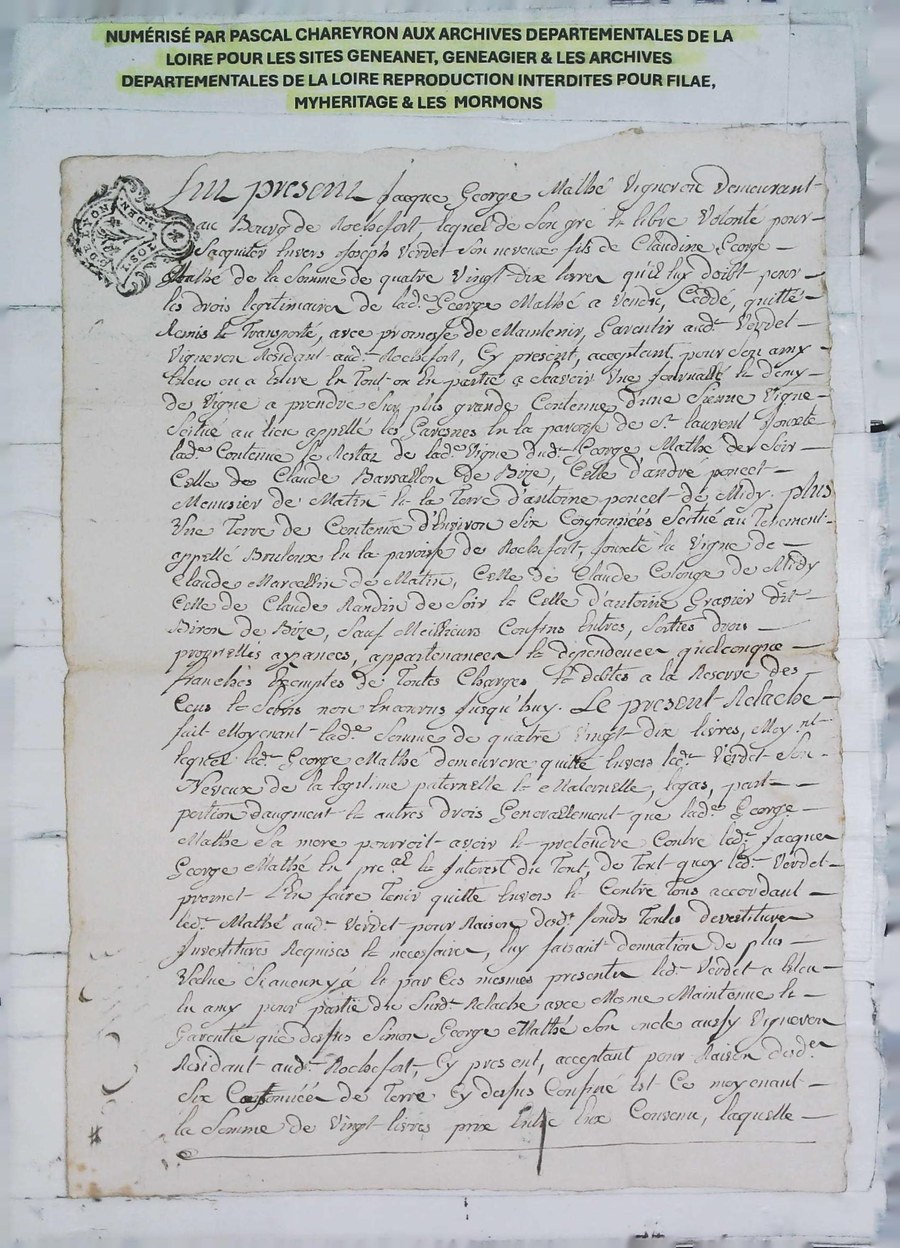 NUMÉRISÉ PAR PASCAL CHAREYRON AUX ARCHIVES DEPARTEMENTALES DE LA
LOIRE POUR LES SITES GENEANET, GENEAGIER & LES ARCHIVES
DEPARTEMENTALES DE LA LOIRE REPRODUCTION INTERDITES POUR FILAE,
MYHERITAGE & LES MORMONS
Fut present Jacque George Mathé Vigneron Demeurant
au Bourg de Rochefort, lequel de Son gré et libre Volonté pour
Saquiter Envers Joseph Verdet Son neveux fils de Claudine George
Mathé de la Somme de quatre Vingt dix livres qu'il luy doibt pour
les drois legitimaires de lad.e George Mathé a Vendu, Ceddé, quitté
Remis et Transporté, avec promesse de Maintenir, Garentir aud.t Verdet
Vigneron Residant aud.t Rochefort, Cy present, acceptant pour Son amy
Eleu ou a Elire En Tout ou En partie a Scavoir Une Journallé et demy
de Vigne a prendre Sur plus grande Contenue d'une Sienne Vigne
Scitué au lieu appellé les Garennes En la paroisse de St. laurent Jouxte
lad.e Contenue le Restat de lad.e Vigne dud.t George Mathé de Soir
Celle de Claude Barsallon de Bize, Celle d'andre poncet
Menusier de Matin et la Terre d'antoine poncet de Midy. plus
Une Terre de Contenue d'Environ Six Coponnéés Scitué au Tenement
appellé Bruloux En la paroisse de Rochefort, Jouxte la Vigne de
Claude Marcellin de Matin, Celle de Claude Colonge de Midy
Celle de Claude Randin de Soir et Celle d'antoine Granier dit
Biron de Bize, Sauf Meillieurs Confins Entres, Sorties drois
propriettes aysances, appartenances et dependences quelconque
franches Exemptes de Toutes Charges et debtes a la Reserve des
Cens et Servis non Encourus Jusqu'huy. Le present Relache
fait Moyenant lad.e Somme de quatre Vingt dix livres, Moy.nt
lequel led.t George Mathé demeurera quitte Envers led.t Verdet Son
Neveux de la legitime paternelle et Maternelle, legas, part
portion d'augment et autres drois Generallement que lad.e George
Mathé Sa mere pourroit avoir et pretendre Contre led.t Jacque
George Mathé En pre.al et Interest du Tout, de Tout quoy led.t Verdet
promet L'En faire Tenir quitte Envers et Contre Tous accordant
led.t Mathé aud.t Verdet pour Raison desd.ts fonds Toutes devestitures
Investitures Requises et necessaires, luy faisant donnation de plus
Value et par Ces mesmes presentes led.t Verdet a Eleu
En amy pour partie du Susd.t Relache avec Mesme Maintenue et
Garentie que dessus Simon George Mathé Son oncle aussy Vigneron
Residant aud.t Rochefort, Cy present, acceptant pour Raison desd.es
Six Coponnéé de Terre Cy dessus Confiné Est Ce moyenant
la Somme de Vingt livres prix Entre Eux Convenu, laquelle